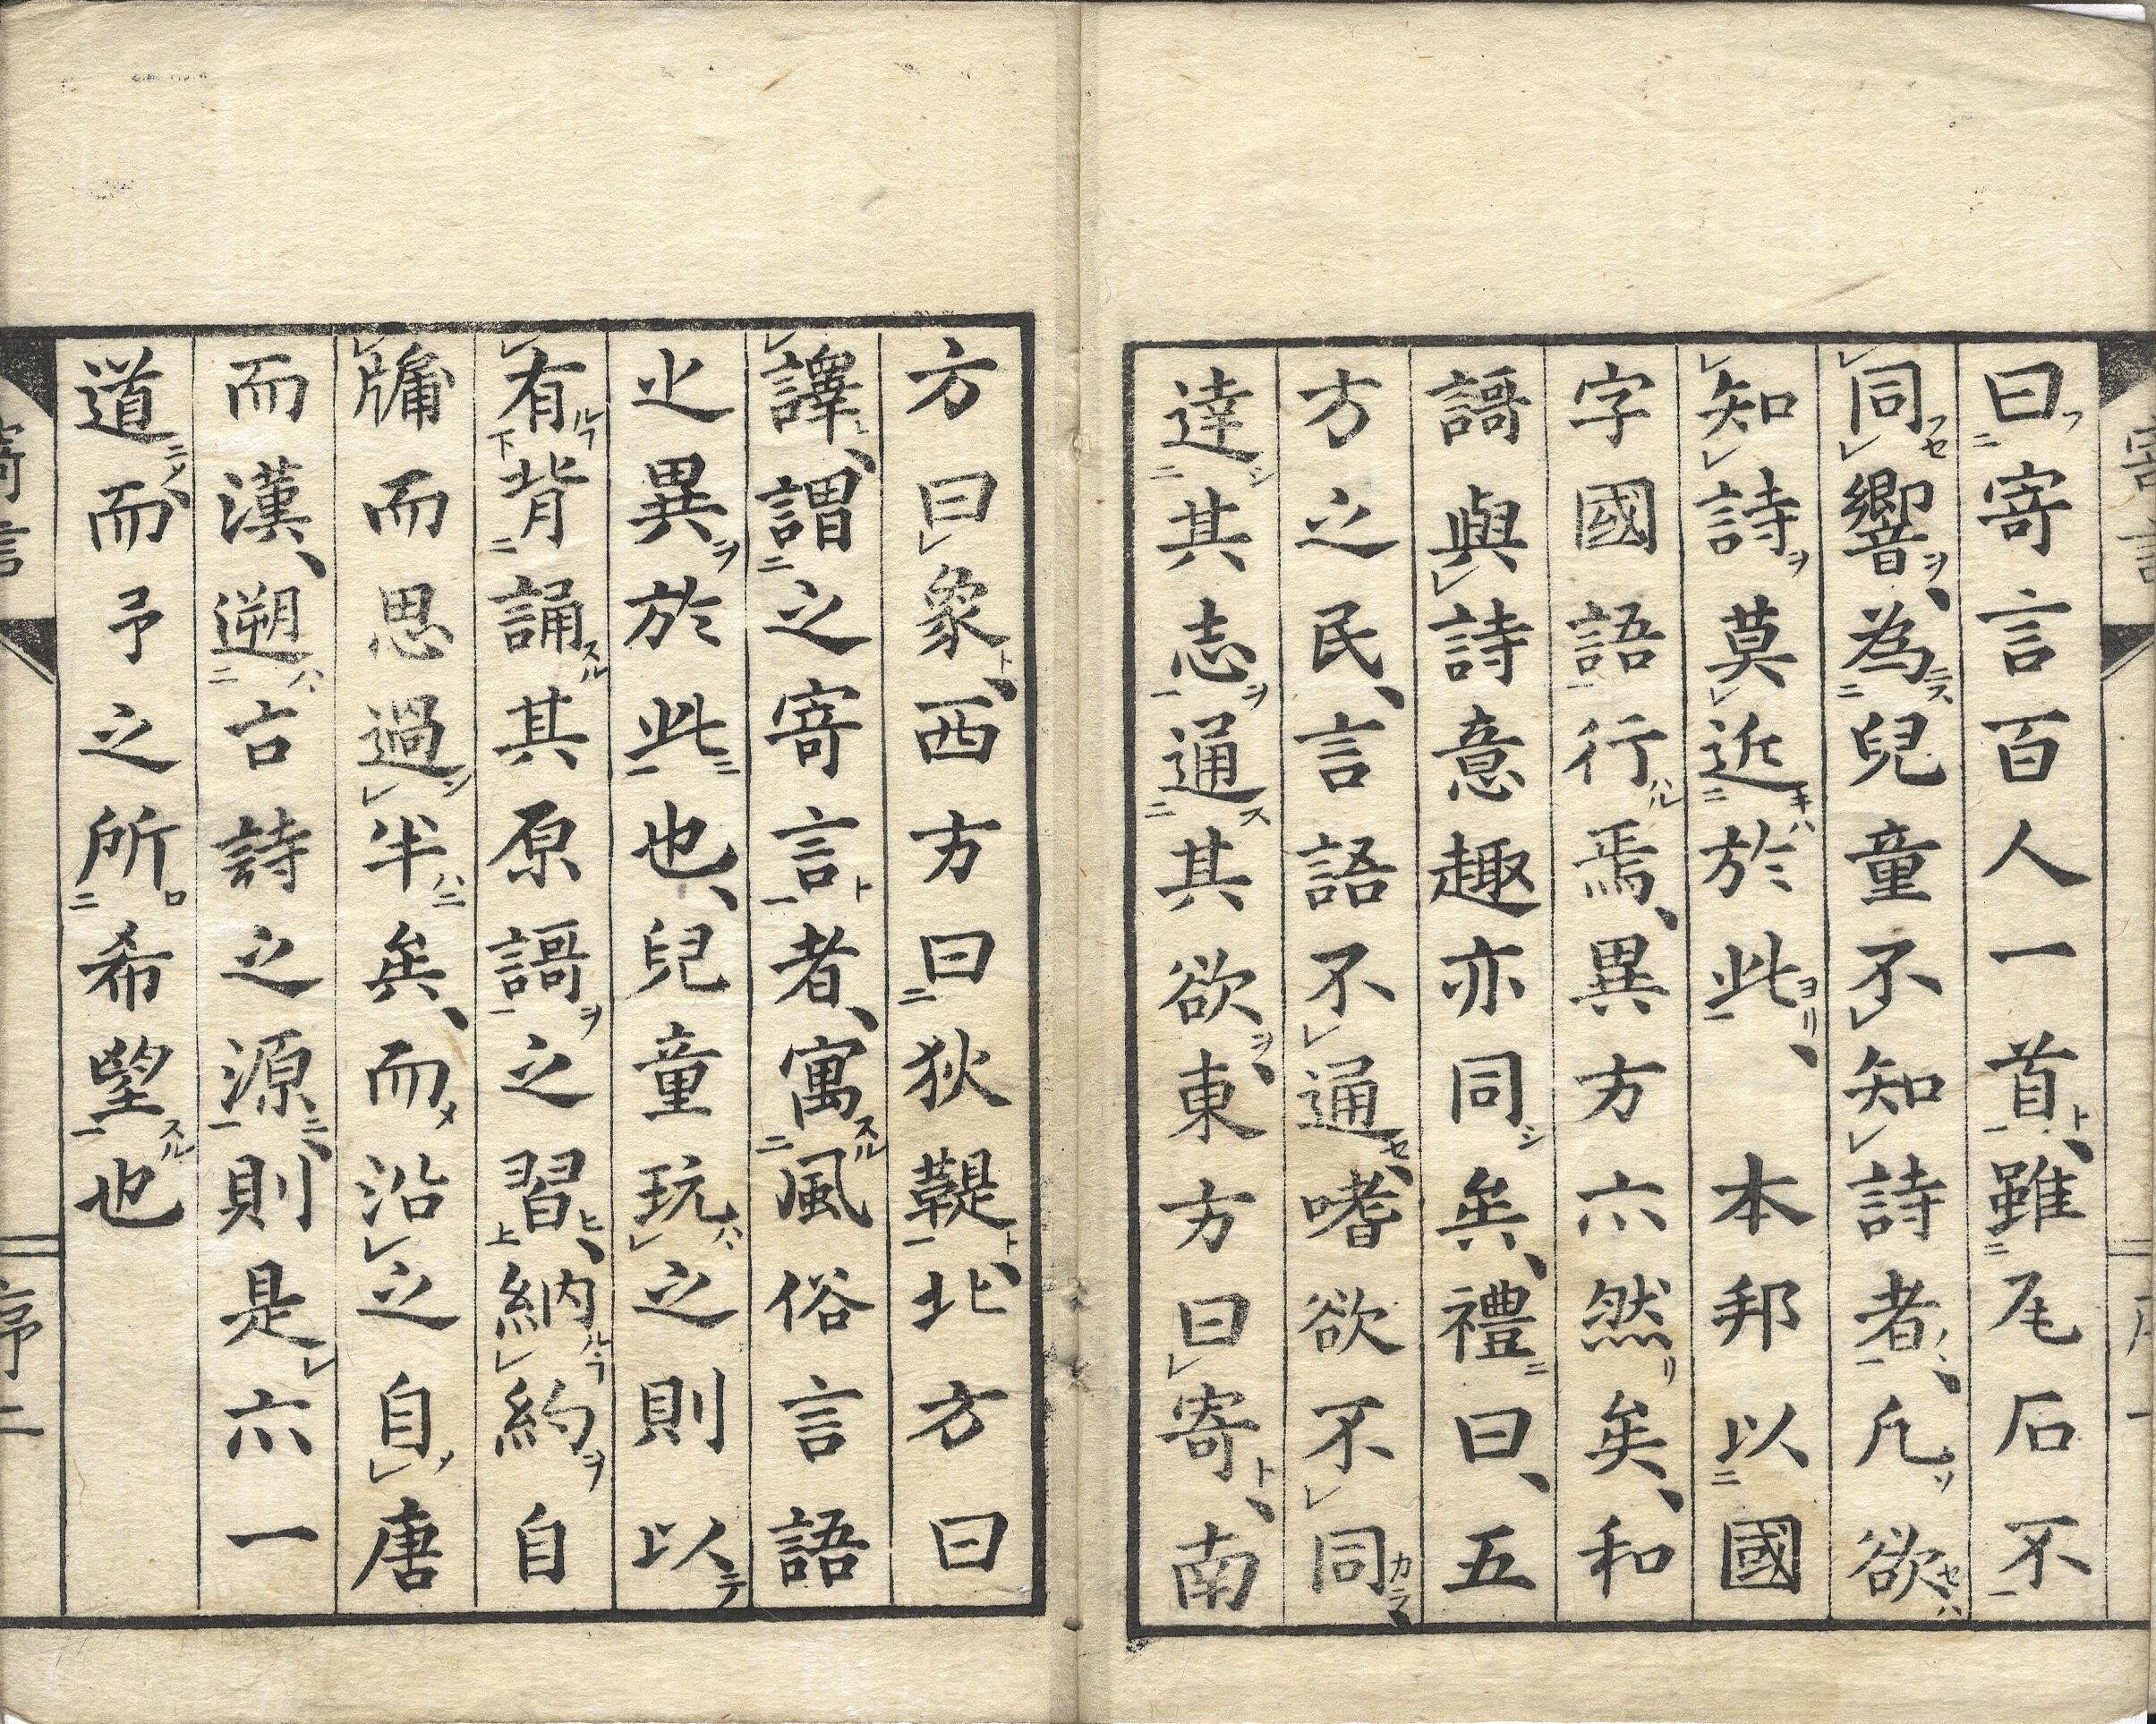 曰寄言百人一首雖尾石不
同響為兒童不知詩者凡欲
知詩莫近於此 本邦以國
字國語行焉異方六然矣和
謌與詩意趣亦同矣禮曰五
方之民言語不通嗜欲不同
達其志通其欲東方曰寄南
方曰象西方曰狄鞮北方曰
譯謂之寄言者寓風俗言語
之異於此也兒童玩之則以
有背誦其原謌之習納約自
牖而思過半矣而沿之自唐
而漢遡古詩之源則是六一
道而予之所希望也
寄言
序二